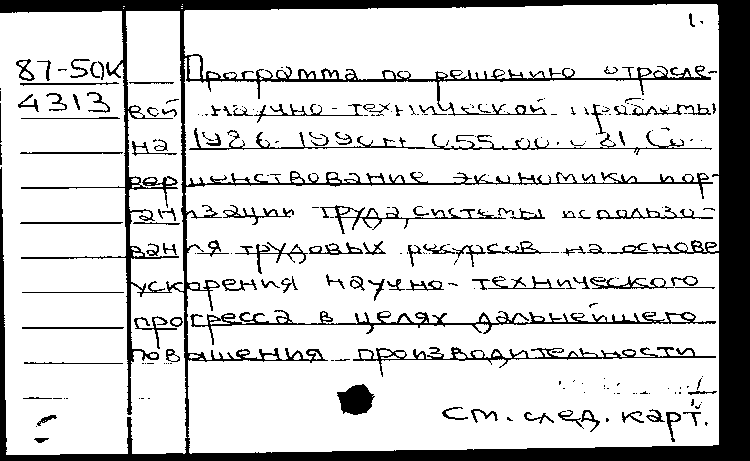 1.
87-50к Программа по решению отрасле-
4313 вой научно-технической проблемы
на 1986-1990 гг 0.55.00.081 „Со-
вершенствование экономики и ор-
ганизации труда, системы использо-
вания трудовых ресурсов на основе
ускорения научно-технического
прогресса в целях дальнейшего
повышения производительности
См. след. карт.